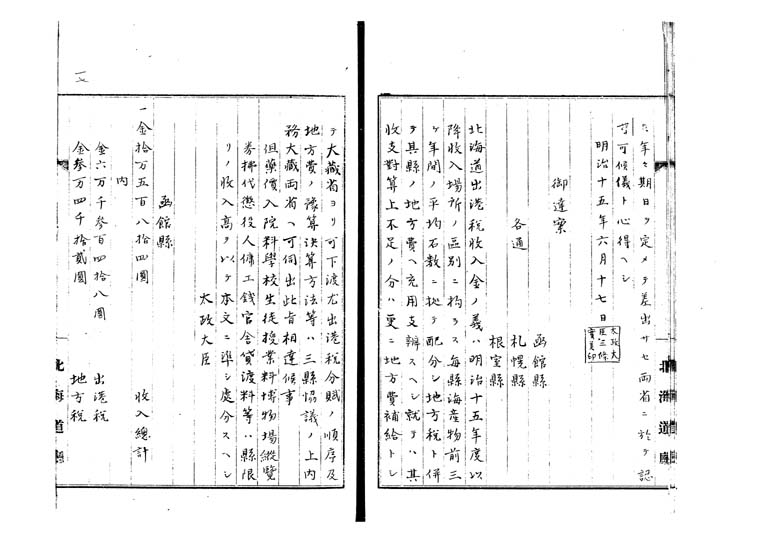 年々期日ヲ定メテ差出サセ両省ニ於テ認
可候儀ト心得ヘシ
明治十五年六月十七日
太政大臣三條實美印
御達案
各通
函館縣
札幌縣
根室縣
北海道出港税收入金ノ義ハ明治十五年度以
降收入場所ノ區別ニ拘ラス毎縣海産物前三
ヶ年間ノ平均石數ニ拠テ配分シ地方税ト併
テ其縣ノ地方費ヘ充用支辨スヘシ就テハ其
收支對算上不足ノ分ハ更ニ地方費補給トシ
テ大藏省ヨリ可下渡尤出港税分賦ノ順序及
地方費ノ豫算決算方法等ハ三縣協議ノ上内
務大藏両省ヘ可伺出此旨相達候事
但藥價入院料學校生徒授業料博物場縱覽
券拂代懲役人傭工錢官舎貸渡料等ハ縣限
リノ收入高ヲ以テ本文ニ準シ處分スヘシ
太政大臣
函館縣
一金拾万五百八拾四圓 收入總計
内
金六万千参百四拾八圓 出港税
金参万四千拾貳圓 地方税
北海道廳
北海道廳